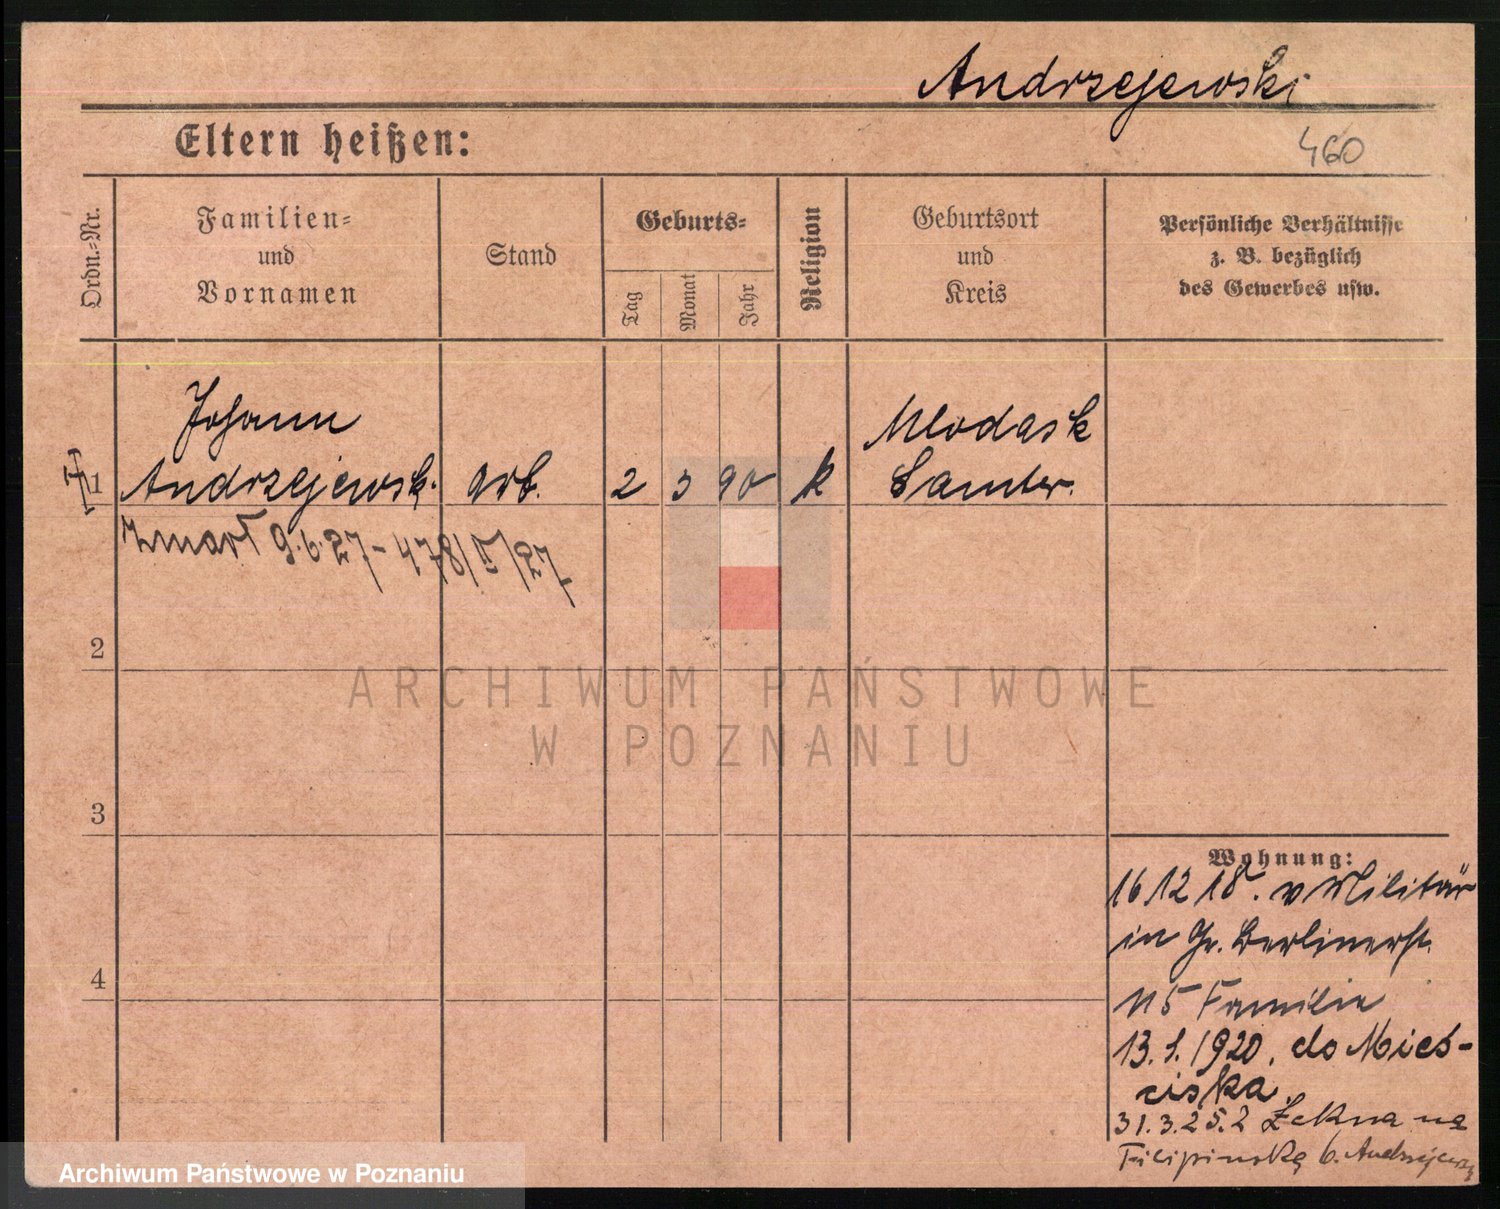 Andrzejewski
460
Eltern heißen:
Ordn.=Nr.
Familien=
und
Vornamen
Stand
Geburts=
Tag
Monat
Jahr
Religion
Geburtsort
und
Kreis
Persönliche Verhältnisse
z. B. bezüglich
des Gewerbes usw.
Johann
1 Andrzejewsk. Arb. 2 3 90 k
Mlodask
Samter.
Zmarł 9.6.27 - 478/VI/27
2
3
4
Wohnung:
16 12 18. v Militär
in Gr. Berlinerst.
115 Familie
13.1.1920. do Mieś-
ciska.
31.3.25. z Łekna na
Filipińską 6. Andrzejewsky
ARCHIWUM PAŃSTWOWE
W POZNANIU
Archiwum Państwowe w Poznaniu